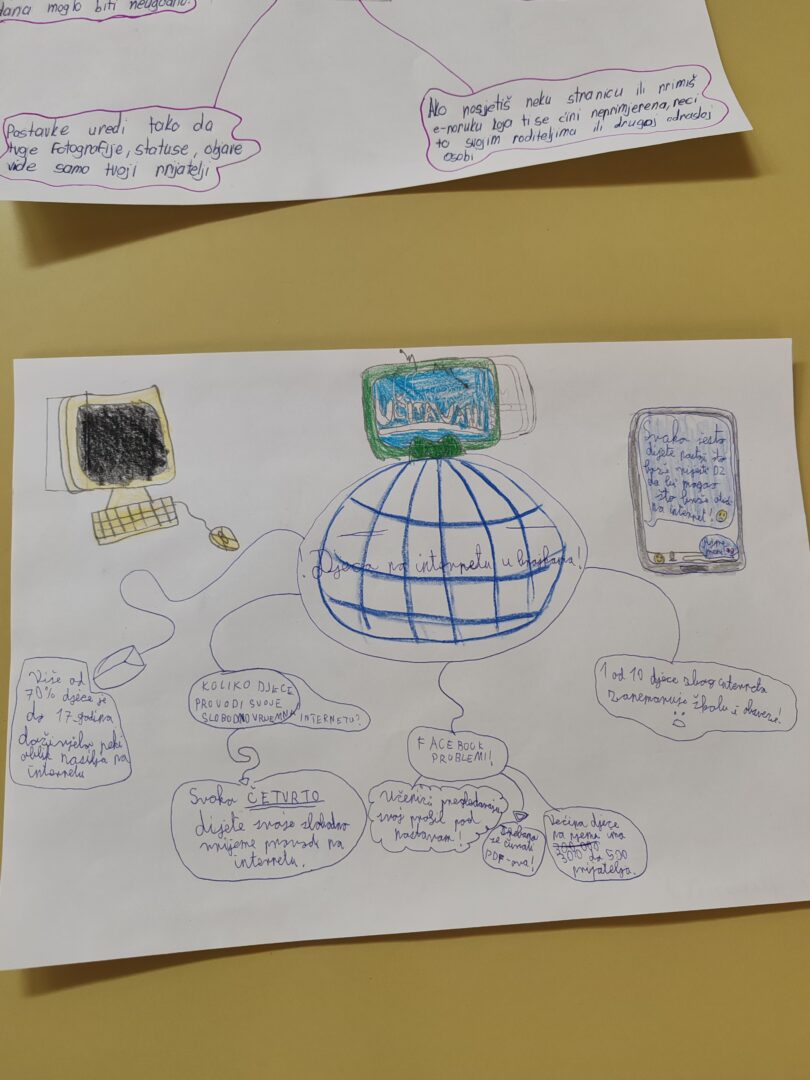 dana moglo biti neugodno!
Postavke uredi tako da
tvoje fotografije, statuse, objave
vide samo tvoji prijatelji
Ako posjetiš neku stranicu ili primiš
e-poruku koja ti se čini neprimjerena, reci
to svojim roditeljima ili drugoj odrasloj
osobi
UČITAVANJE
Svako šesto
dijete postoji što
brže riješiti DZ
da bi mogao
što brže
na internet!
! Djeca na internetu u brojkama!
Više od
70% djece je
do 17. godina
doživjelo neki
oblik nasilja na
internetu
KOLIKO DJECE
PROVODI SVOJE
SLOBODNO VRIJEME NA INTERNETU?
Svako ČETVRTO
dijete svoje slobodno
vrijeme provodi na
internetu.
FACEBOOK
PROBLEMI!
Učenici pregledavaju
svoj profil pod
nastavom!
Treba
se čuvati
PDF-ova!
Većina djece
na njemu ima
300 do 500
prijatelja.
1 od 10 djece zbog interneta
zanemaruje školu i obaveze!